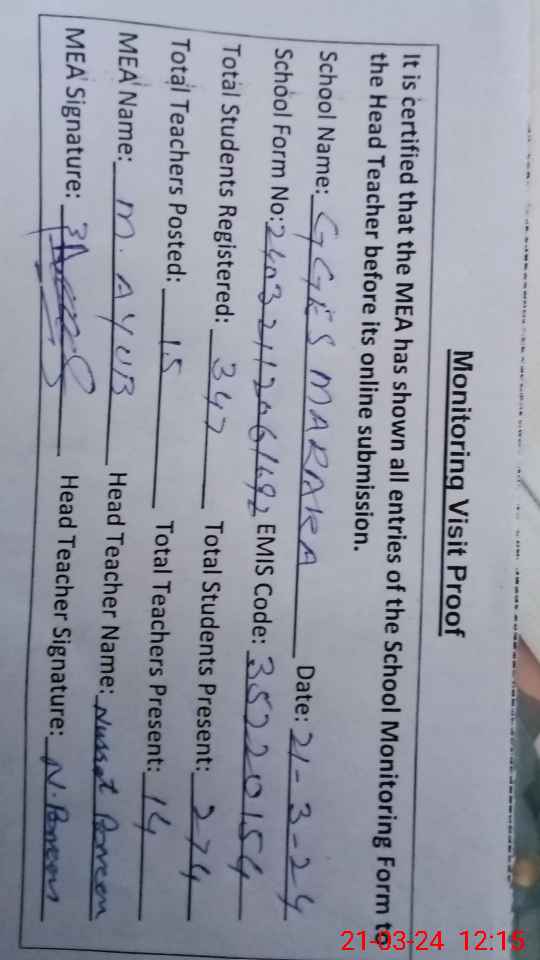 Monitoring Visit Proof
It is certified that the MEA has shown all entries of the School Monitoring Form to
the Head Teacher before its online submission.
School Name: GGES MARAKA Date: 21-3-24
School Form No: EMIS Code: 35220154
Total Students Registered: 347 Total Students Present: 274
Total Teachers Posted: 15 Total Teachers Present: 14
MEA Name: M. AYUB Head Teacher Name: Nussat Parveen
MEA Signature: Head Teacher Signature: N. Parveen
21-03-24 12:15